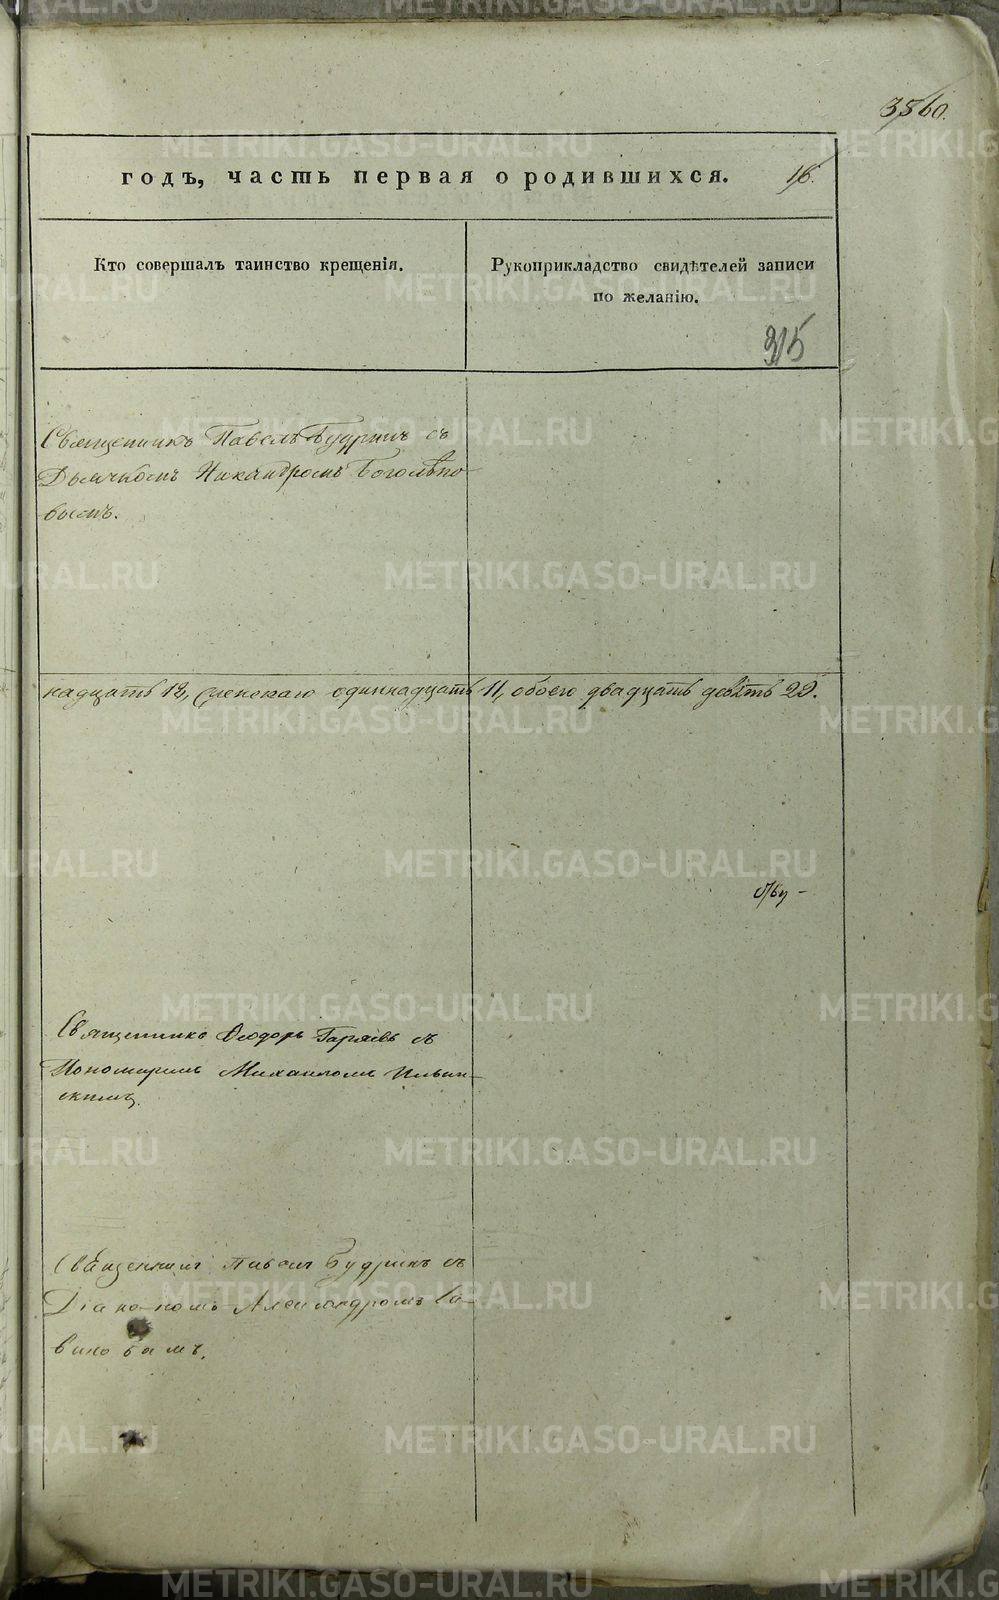 годъ, часть первая о родившихся.
16.
Кто совершалъ таинство крещенія.
Рукоприкладство свидѣтелей записи
по желанію.
315
Священникъ Павелъ Будринъ съ
Дьячкомъ Никандромъ Боголѣпо-
вымъ.
надцать 18, женскаго одиннадцать 11, обоего двадцать девять 29.
Священникъ Ѳеодоръ Гаряевъ съ
Пономаремъ Михаиломъ Ильин-
скимъ.
Священникъ Павелъ Будринъ съ
Діакономъ Александромъ Са-
виновымъ.
METRIKI.GASO-URAL.RU